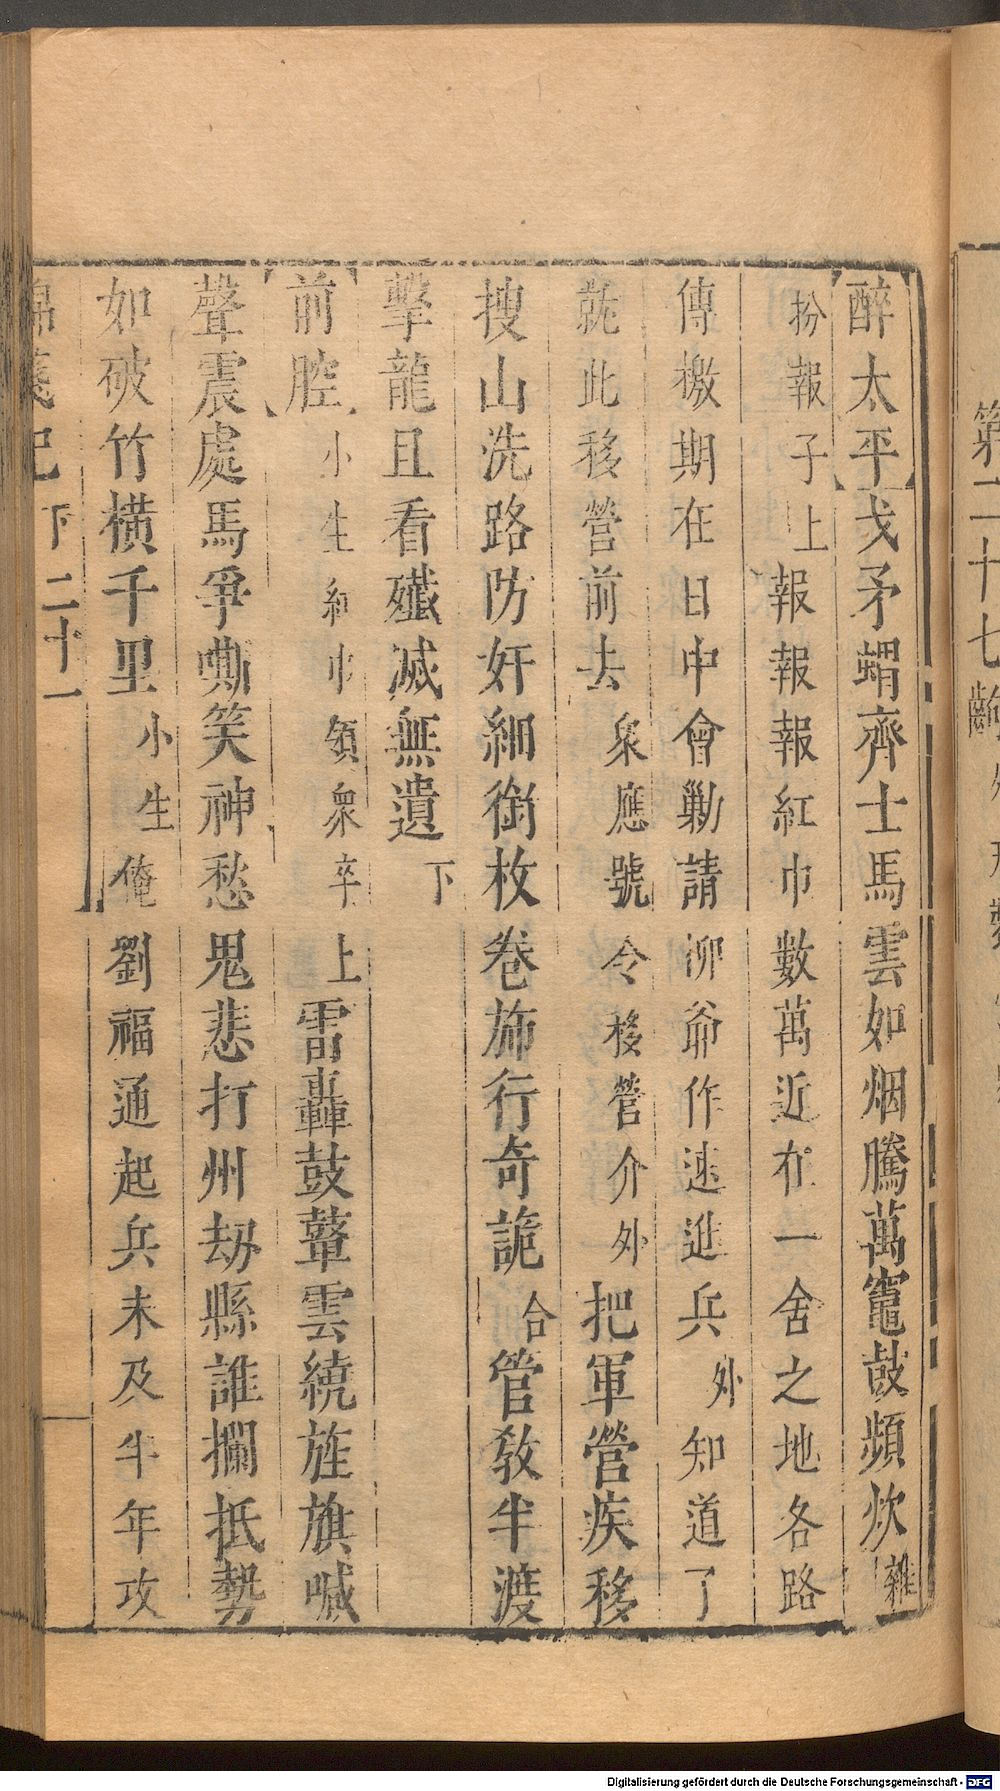 【醉太平】戈矛蝟齊士馬雲如烟騰萬竈鼓頻炊雜
扮報子上報報報紅巾數萬近在一舍之地各路
傳檄期在日中會勦請柳爺作速進兵外知道了
就此移營前去衆應號令移營介外把軍營疾移
搜山洗路防奸細銜枚卷斾行奇詭合管教半渡
擊龍且看殲滅無遺下
【前腔】小生紅巾領衆卒上雷轟鼓鼙雲繞旌旗喊
聲震處馬爭嘶笑神愁鬼悲打州劫縣誰攔抵勢
如破竹橫千里小生俺劉福通起兵未及半年攻
錦箋記 下 二十一
第二十七齣
Digitalisierung gefördert durch die Deutsche Forschungsgemeinschaft - DFG